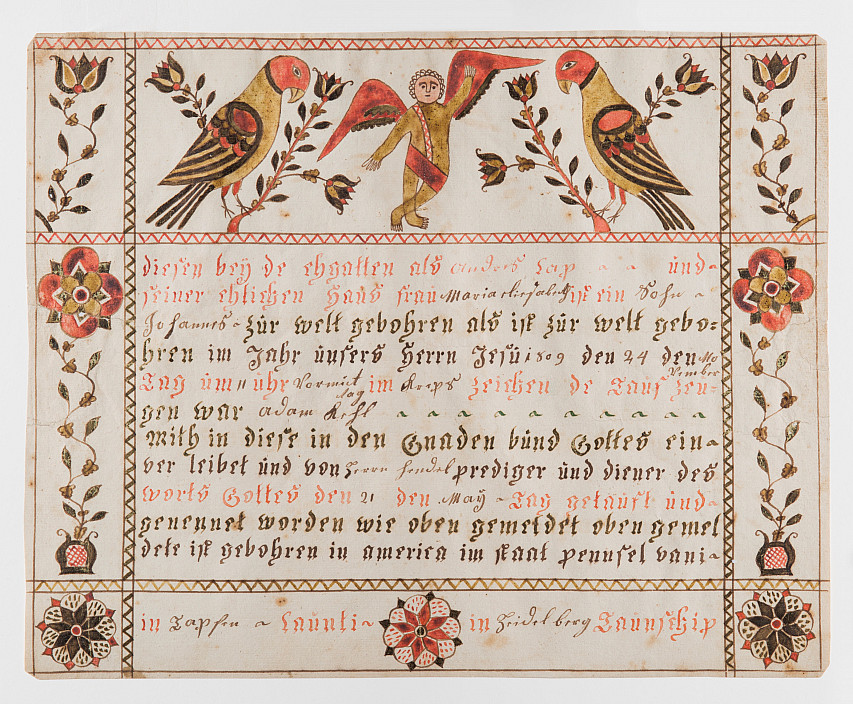 diesen bey de ehgatten als anders Lap und
seiner ehlichen Haus frau Maria eliesabeth ist ein Sohn
Johannes zür welt gebohren als ist zür welt gebo=
hren im Jahr ünsers Herrn Jesü 1809 den 24 den No
vember
Tag üm 11 ühr Vormit im Kreps zeichen de Taüf zeü=
tag
gen war adam Kehl
Mith in diese in den Gnaden bünd Gottes ein
ver leibet ünd von Herrn hendel prediger ünd diener des
worts Gottes den 21 den May Tag getaüft ünd
genennet worden wie oben gemeldet oben gemel
dete ist gebohren in america im staat pennsel vani
in Tapfen Caünti in Heidelberg Taünschip